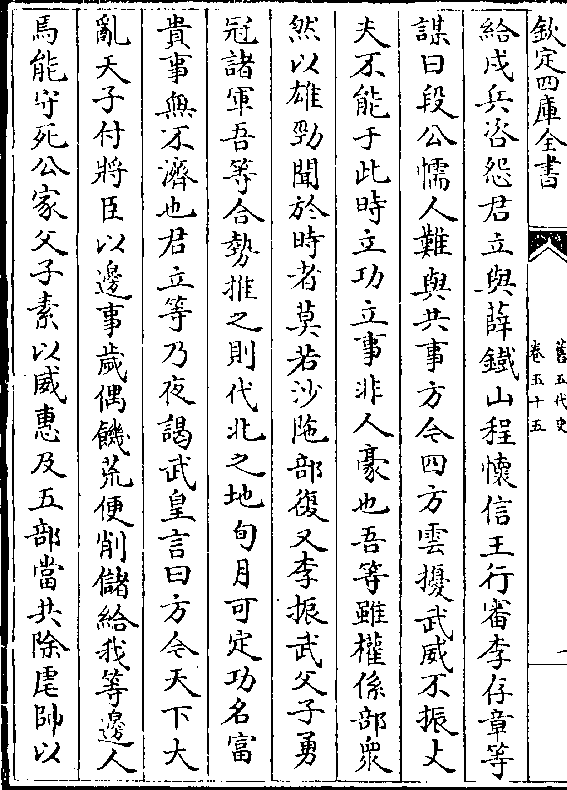 欽定四庫全書
舊五代史
卷五十五
一
給戍兵咨怨君立與薛鐵山程懷信王行審李存章等
謀曰段公懦人難與共事方今四方雲擾武威不振丈
夫不能于此時立功立事非人豪也吾等雖權係部衆
然以雄勁聞於時者莫若沙陁部復又李振武父子勇
冠諸軍吾等合勢推之則代北之地旬月可定功名富
貴事無不濟也君立等乃夜謁武皇言曰方今天下大
亂天子付將臣以邊事歲偶饑荒便削儲給我等邊人
焉能守死公家父子素以威惠及五部當共除虐帥以